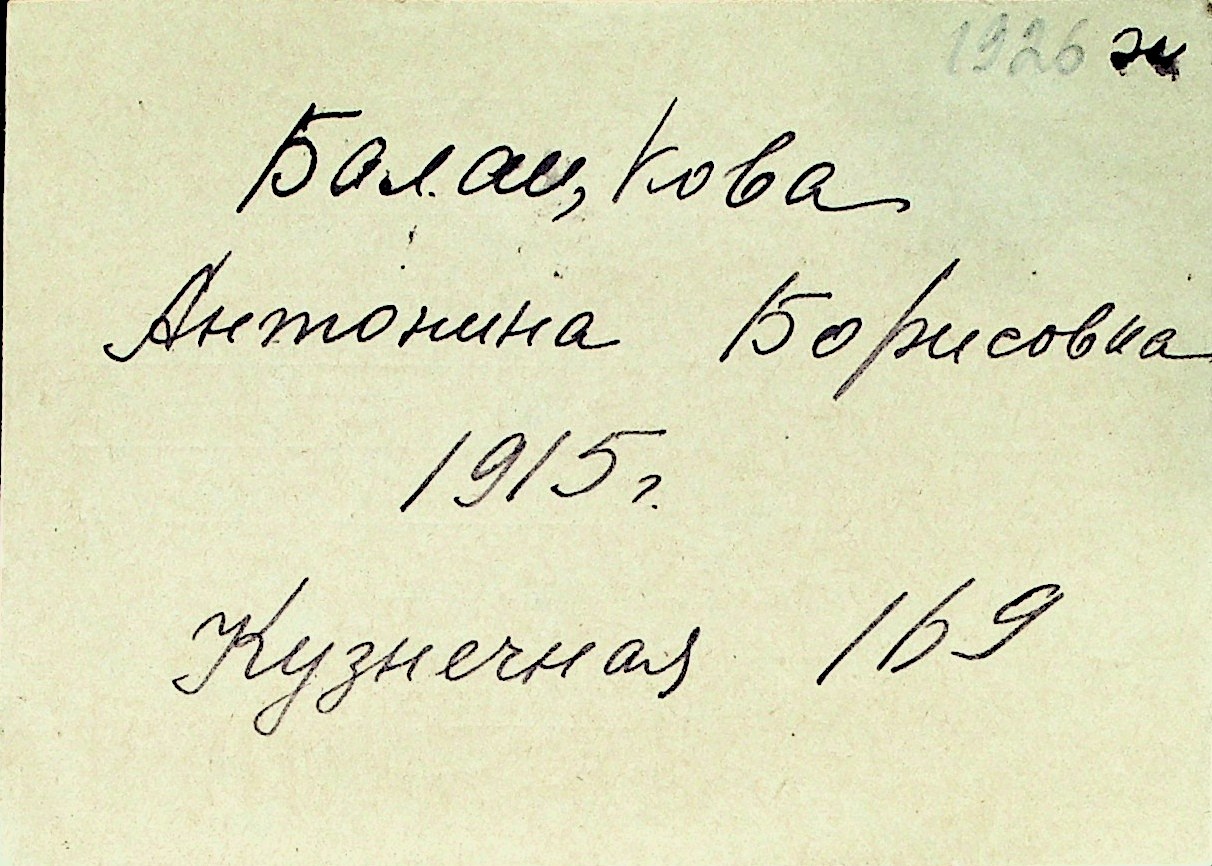 1926 ж
Балацкова
Антонина Борисовна
1915 г.
Кузнечная 169